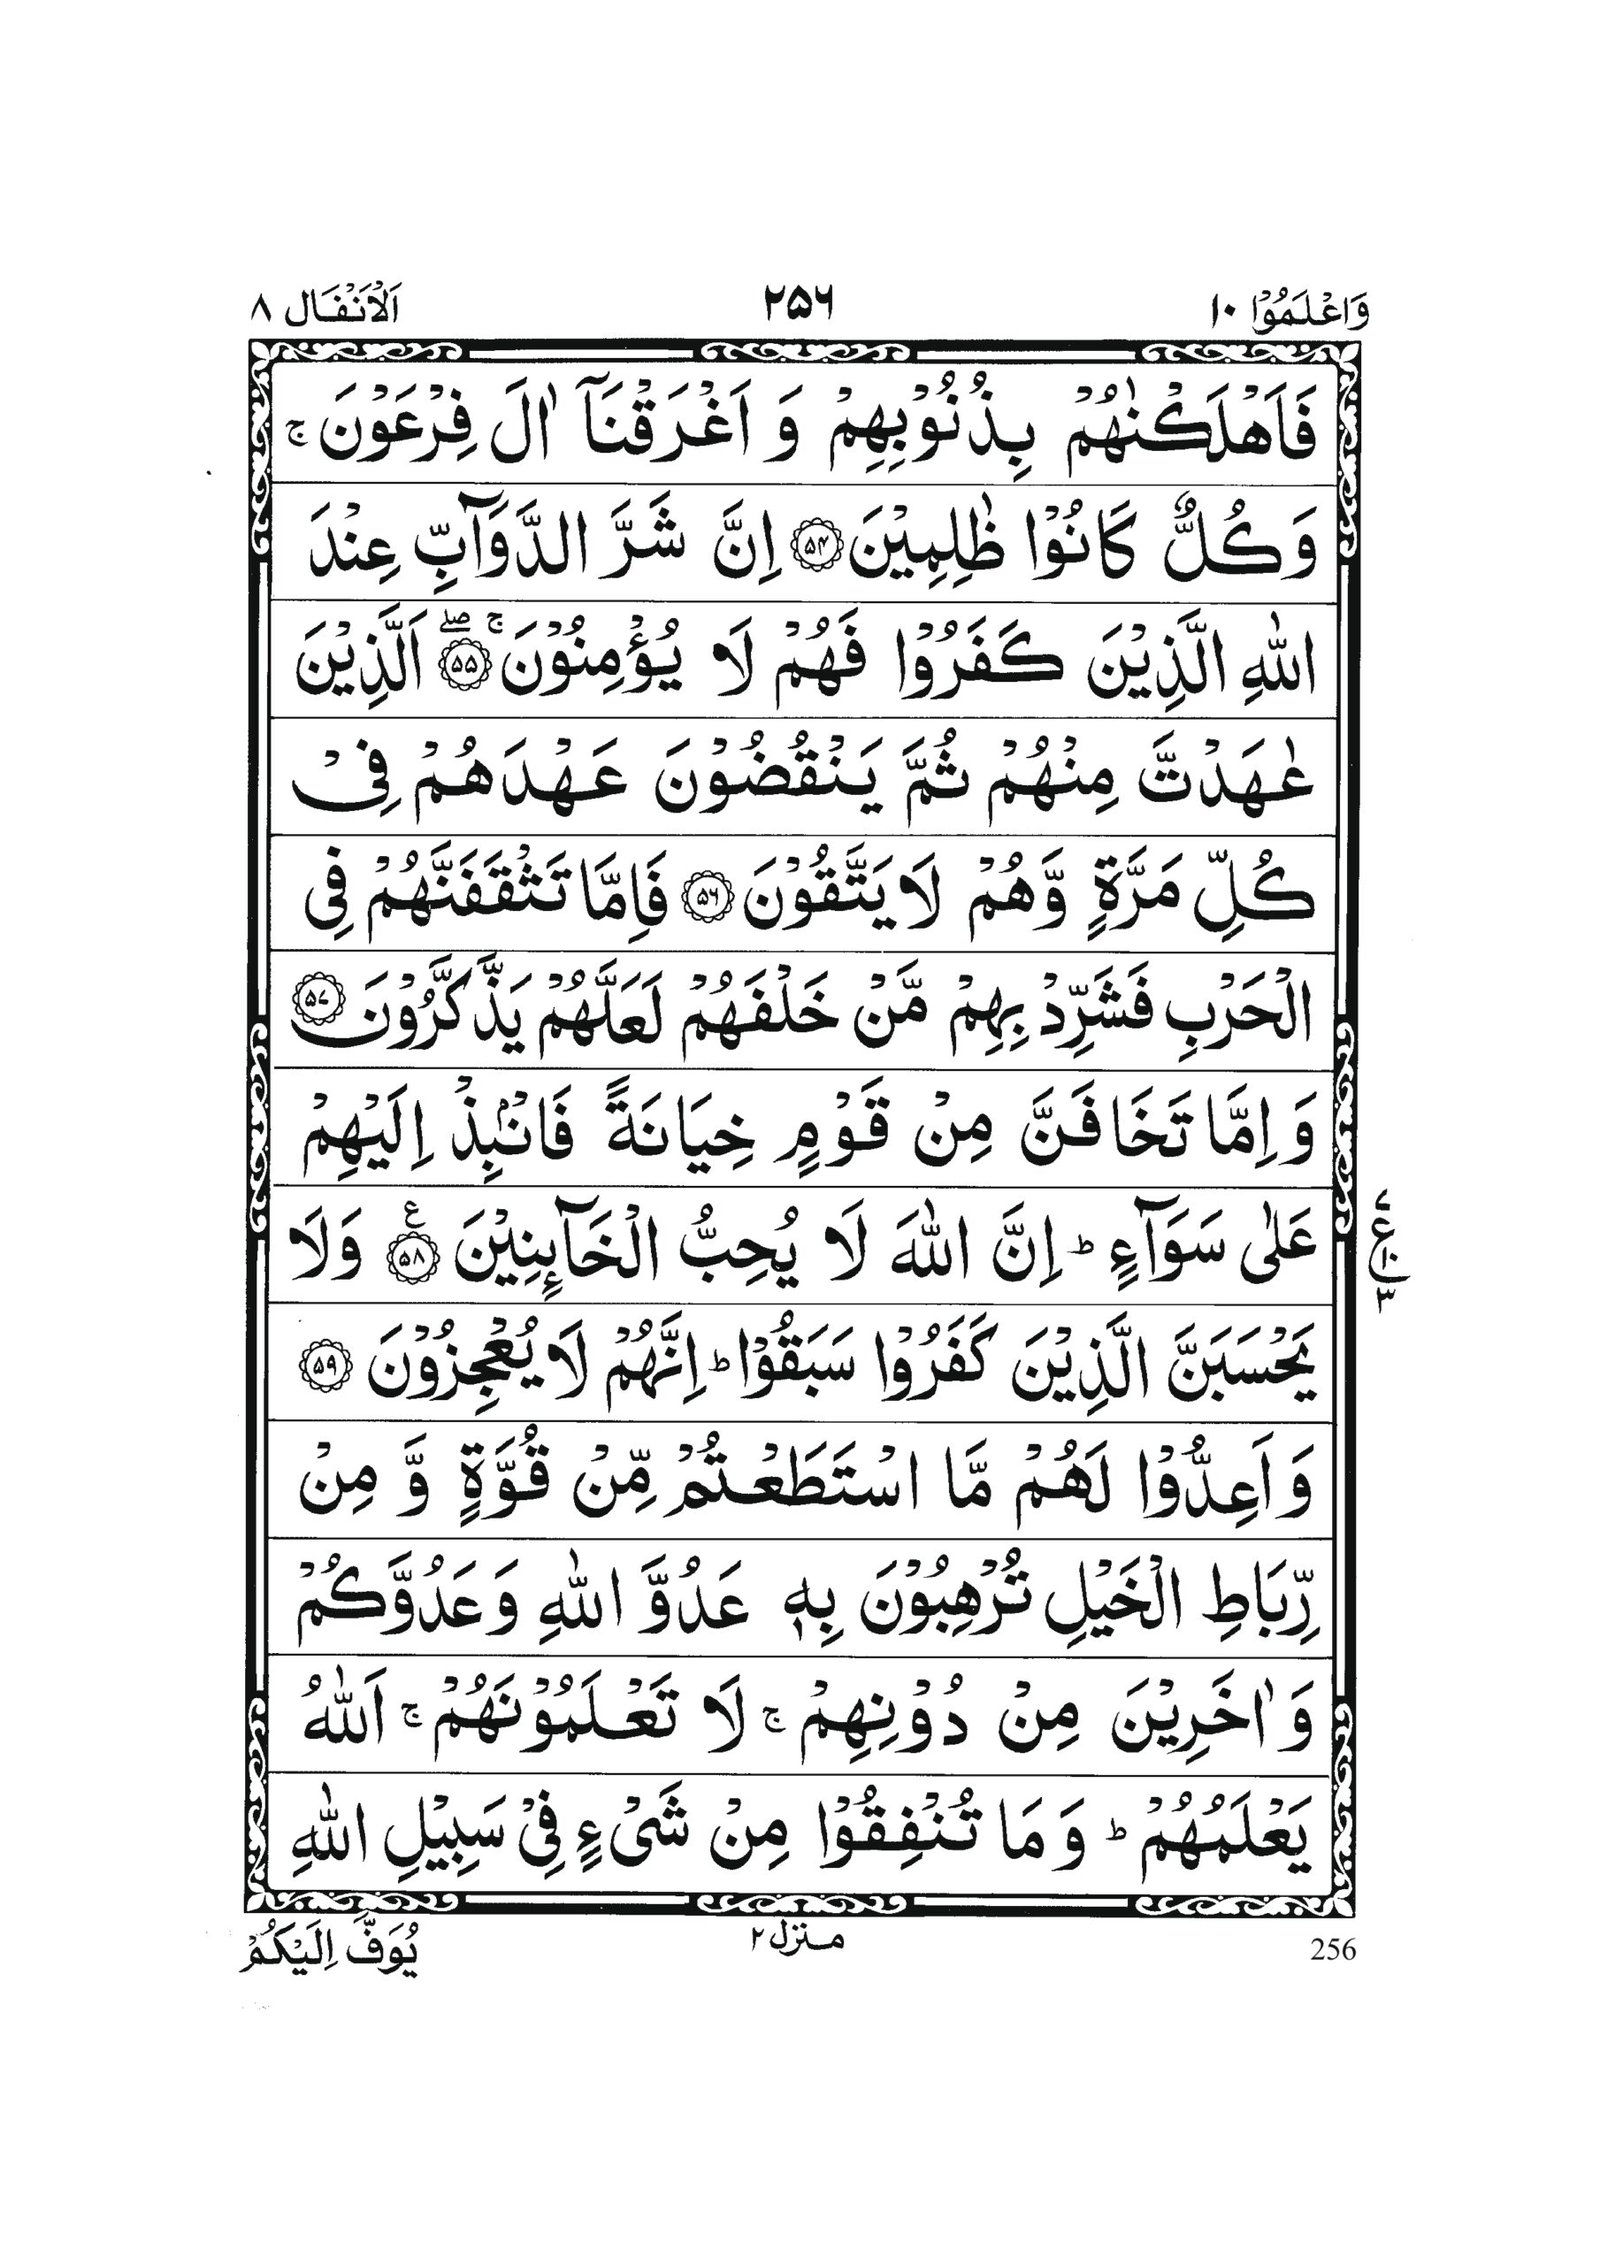 وَاعْلَمُوْۤا ١٠
٢٥٦
اَلْاَنْفَال ٨
فَاَهْلَكْنٰهُمْ بِذُنُوْبِهِمْ وَ اَغْرَقْنَاۤ اٰلَ فِرْعَوْنَ ۚ
وَ كُلٌّ كَانُوْا ظٰلِمِيْنَ ﴿۵۴﴾ اِنَّ شَرَّ الدَّوَآبِّ عِنْدَ
اللّٰهِ الَّذِيْنَ كَفَرُوْا فَهُمْ لَا يُؤْمِنُوْنَ ۚ ﴿۵۵﴾ ۖ اَلَّذِيْنَ
عٰهَدْتَّ مِنْهُمْ ثُمَّ يَنْقُضُوْنَ عَهْدَهُمْ فِيْ
كُلِّ مَرَّةٍ وَّهُمْ لَا يَتَّقُوْنَ ﴿۵۶﴾ فَاِمَّا تَثْقَفَنَّهُمْ فِي
الْحَرْبِ فَشَرِّدْ بِهِمْ مَّنْ خَلْفَهُمْ لَعَلَّهُمْ يَذَّكَّرُوْنَ ﴿۵۷﴾
وَ اِمَّا تَخَافَنَّ مِنْ قَوْمٍ خِيَانَةً فَانْۢبِذْ اِلَيْهِمْ
عَلٰى سَوَآءٍ ؕ اِنَّ اللّٰهَ لَا يُحِبُّ الْخَآئِنِيْنَ ﴿۵۸﴾ ع وَلَا
يَحْسَبَنَّ الَّذِيْنَ كَفَرُوْا سَبَقُوْا ؕ اِنَّهُمْ لَا يُعْجِزُوْنَ ﴿۵۹﴾
وَ اَعِدُّوْا لَهُمْ مَّا اسْتَطَعْتُمْ مِّنْ قُوَّةٍ وَّ مِنْ
رِّبَاطِ الْخَيْلِ تُرْهِبُوْنَ بِهٖ عَدُوَّ اللّٰهِ وَ عَدُوَّكُمْ
وَ اٰخَرِيْنَ مِنْ دُوْنِهِمْ ۚ لَا تَعْلَمُوْنَهُمْ ۚ اَللّٰهُ
يَعْلَمُهُمْ ؕ وَ مَا تُنْفِقُوْا مِنْ شَيْءٍ فِيْ سَبِيْلِ اللّٰهِ
يُوَفَّ اِلَيْكُمْ
منزل ٢
256